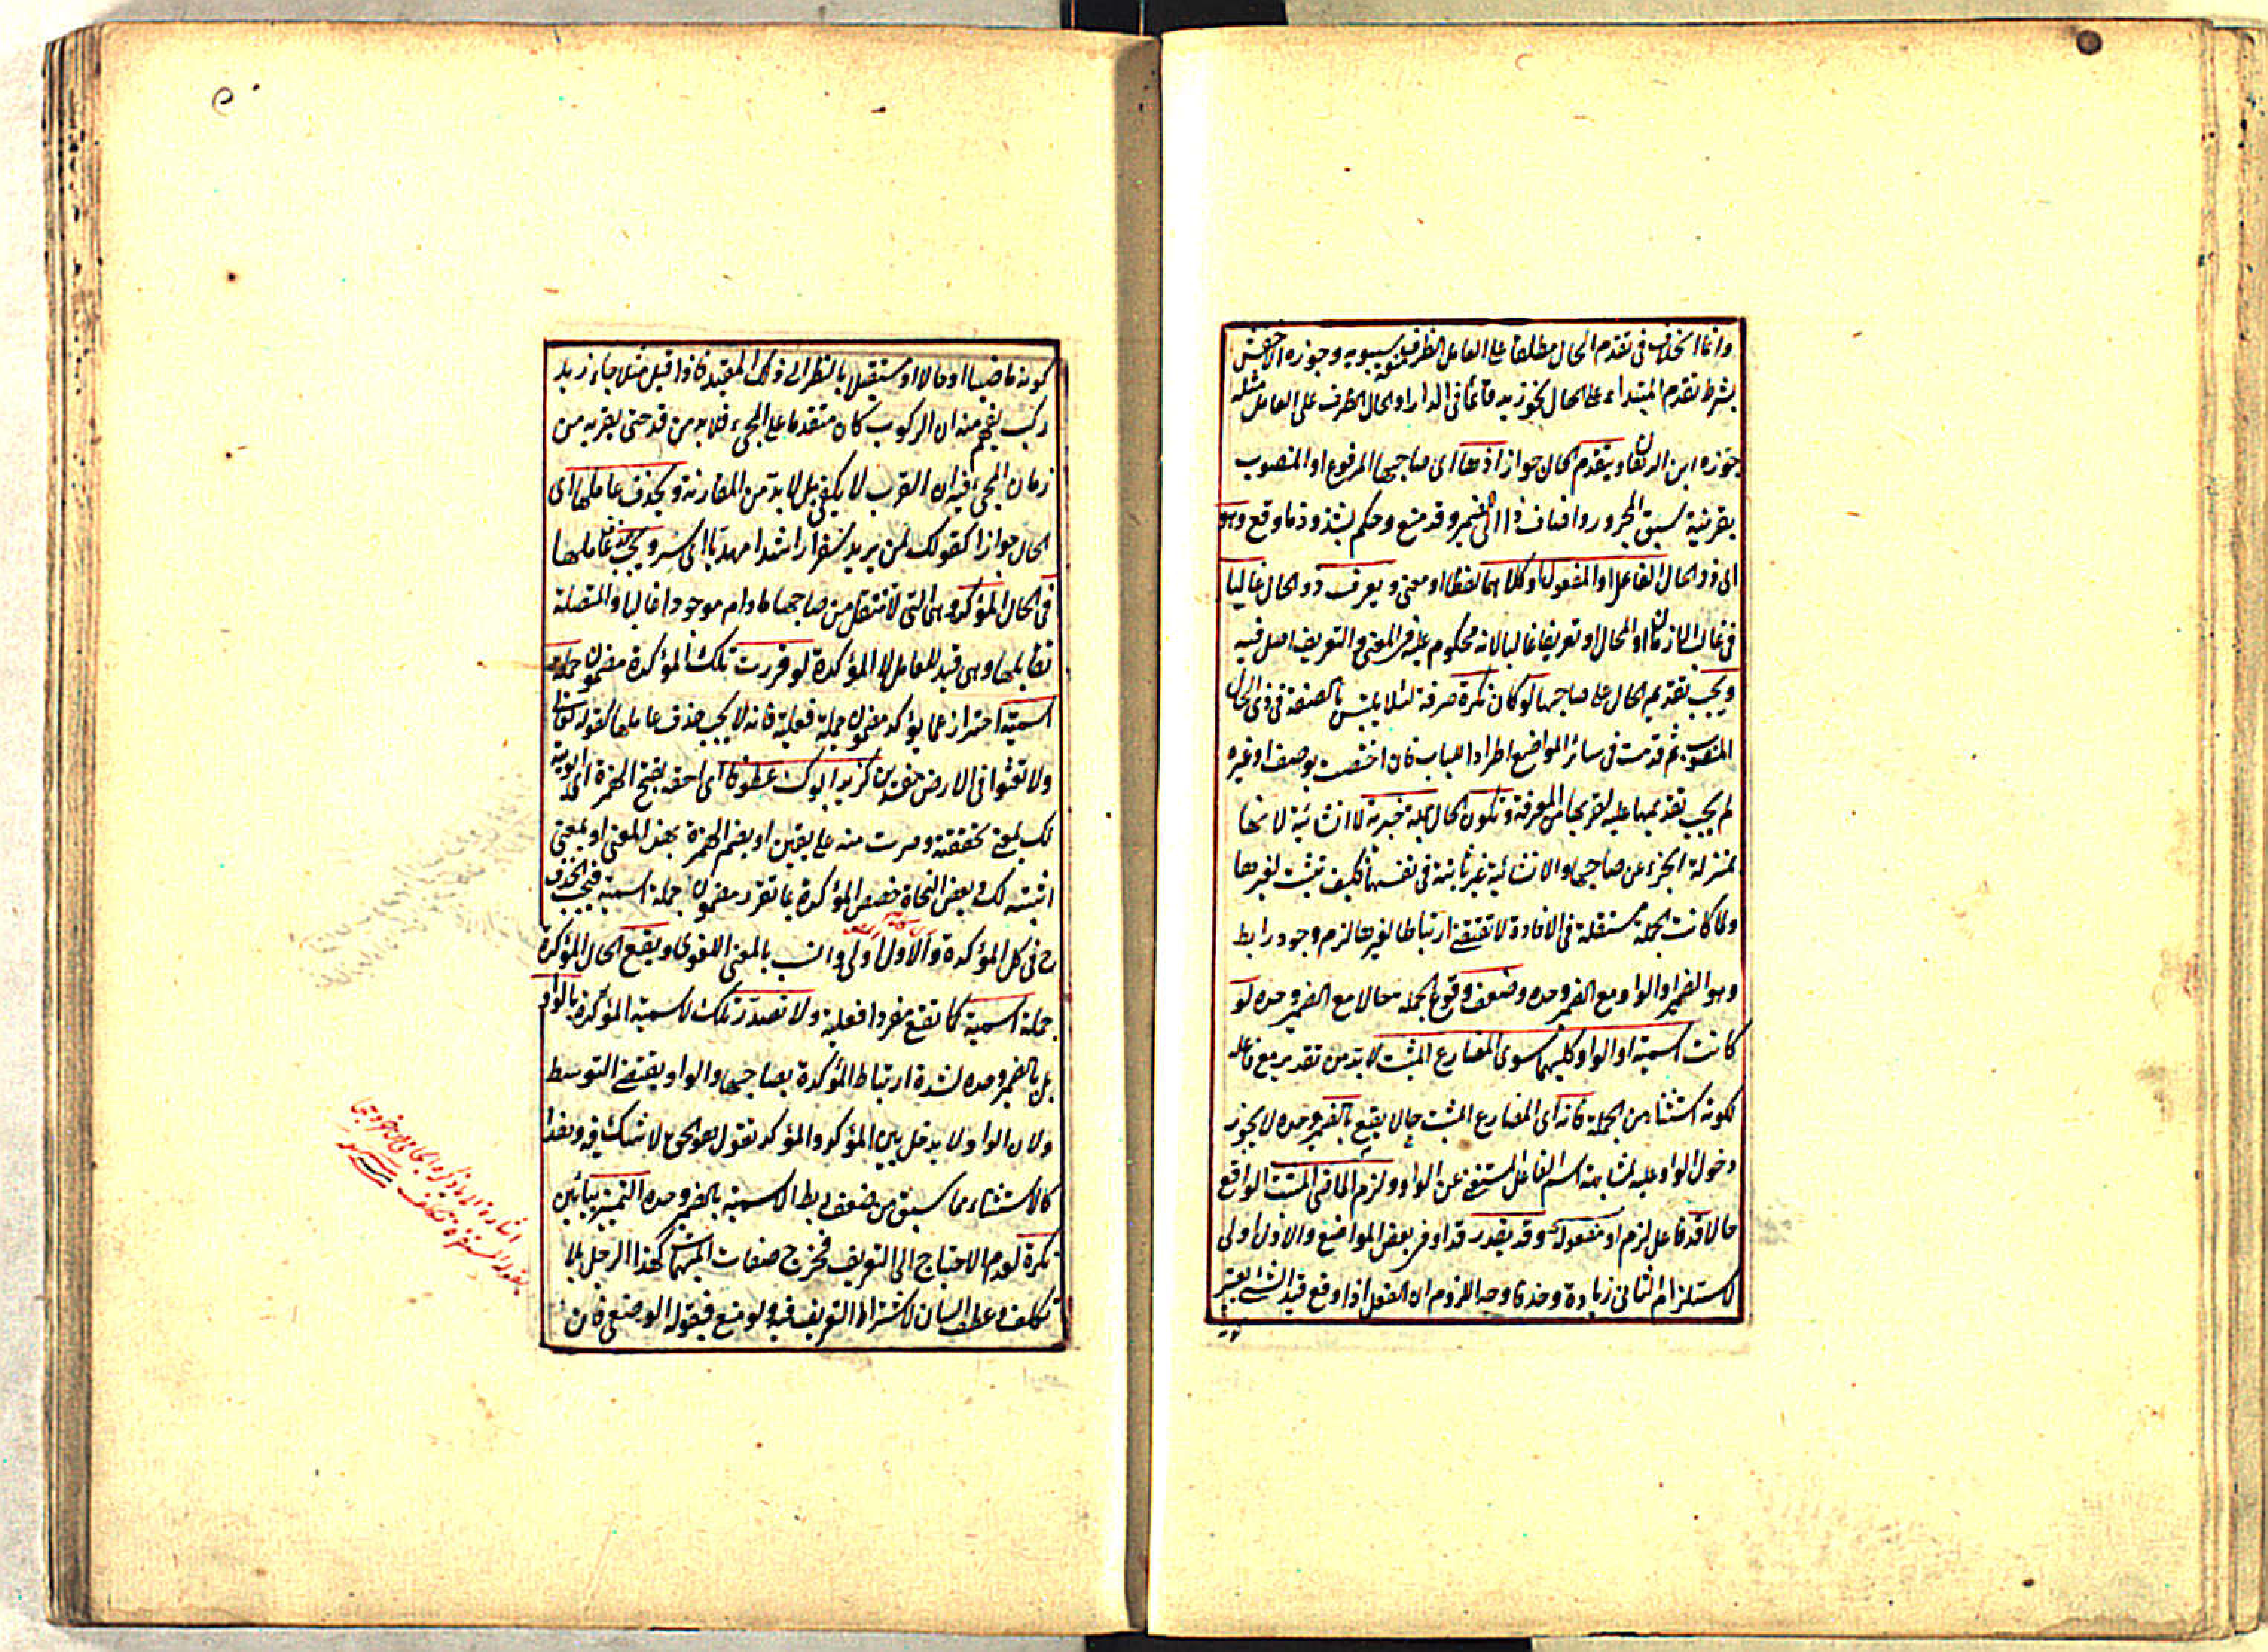 وانما الخلاف فى تقدم الحال مطلقا على العامل الظرف منعه سيبويه وجوزه الاخفش
بشرط تقدم المبتداء على الحال نحو زيد قائما فى الدار او الحال الظرف على العامل مثله
جوزه ابن الدهان ويتقدم الحال جوازا ذها اى صاحبها المرفوع او المنصوب
بقرينة سبق المجرور واضاف ذا الى الضمير وقد منع وحكم بشذوذ ما وقع وهو
اى ذو الحال الفاعل او المفعول او كلاهما لفظا او معنى ويعرف ذو الحال غالبا
فى غالب الازمان او المحال او تعريفا غالبا لانه محكوم عليه فى المعنى والتعريف اصل فيه
ويجب تقديم الحال على صاحبها لو كان نكرة صرفة لئلا يلتبس بالصفة فى ذى الحال
المنصوب ثم قدمت فى سائر المواضع اطرادا للباب فان اختصت بوصف او غيره
لم يجب تقديمها عليه لقربها من المعرفة وتكون الحال جملة خبرية لا انشائية لانها
بمنزلة الخبر عن صاحبها والانشائية غير ثابتة فى نفسها فكيف تثبت لغيرها
ولما كانت الجملة مستقلة فى الافادة لا تقتضى ارتباطا لغيرها لزم وجود رابط
وهو الضمير او الواو مع الضمير وحده وضعف وقوع الجملة حالا مع الضمير وحده لو
كانت اسمية او الواو كليهما سوى المضارع المثبت لا بد من تقدير مع فاعله
لكونه استثناء من الجملة فانه اى المضارع المثبت حالا يقع بالضمير وحده لا يجوز
دخول الواو عليه لمشابهته اسم الفاعل المستغنى عن الواو ولزم الماضى المثبت الواقع
حالا قد فاعل لزم او مفعوله وقد يقدر قد او فى بعض المواضع والاول اولى
لاستلزام الثانى زيادة وحذفا وجه اللزوم ان الفعل اذا وقع قيد الشئ يعتبر
كونه ماضيا او حالا او مستقبلا بالنظر الى ذلك المقيد فاذا قيل مثلا جاء زيد
ركب يفهم منه ان الركوب كان متقدما على المجىء فلا بد من قد حتى يقربه من
زمان المجىء فيه ان القرب لا يكفى بل لا بد من المقارنة ويحذف عاملها اى
الحال جوازا كقولك لمن يريد سفرا راشدا مهديا اى سر ويجب حذف عاملها
فى الحال المؤكدة وهى التى لا تنتقل من صاحبها ما دام موجودا غالبا والمنتقلة
تقابلها وهى قيد للعامل لا المؤكدة لو قررت تلك المؤكدة مضمون جملة
اسمية احتراز عما يؤكد مضمون جملة فعلية فانه لا يجب حذف عاملها كقوله تعالى
ولا تعثوا فى الارض مفسدين كزيد ابوك عطوفا اى احقه بفتح الهمزة اى ابوته
لك بمعنى تحققته وصرت منه على يقين او بضم الهمزة بهذا المعنى او بمعنى
اثبته لك وبعض النحاة خصص المؤكدة بما تقرر مضمون جملة اسمية فيجب الحذف
ح فى كل المؤكدة والاول اولى وانسب بالمعنى اللغوى ويقع الحال المؤكدة
جملة اسمية كما تقع مفردا فعلية ولا تصدر تلك الاسمية المؤكدة بالواو
بل بالضمير وحده لشدة ارتباط المؤكدة بصاحبها والواو يقتضى التوسط
ولان الواو لا يدخل بين المؤكد والمؤكد تقول هو الحق لا شك فيه وهذا
كالاستثناء مما سبق من ضعف ربط الاسمية بالضمير وحده التمييز يبائين
نكرة لعدم الاحتياج الى التعريف فخرج صفات المبهمات كهذا الرجل بلا
تكلف وعطف البيان لاشتراط التعريف فيه ولو منع فبقوله الوضعى فان